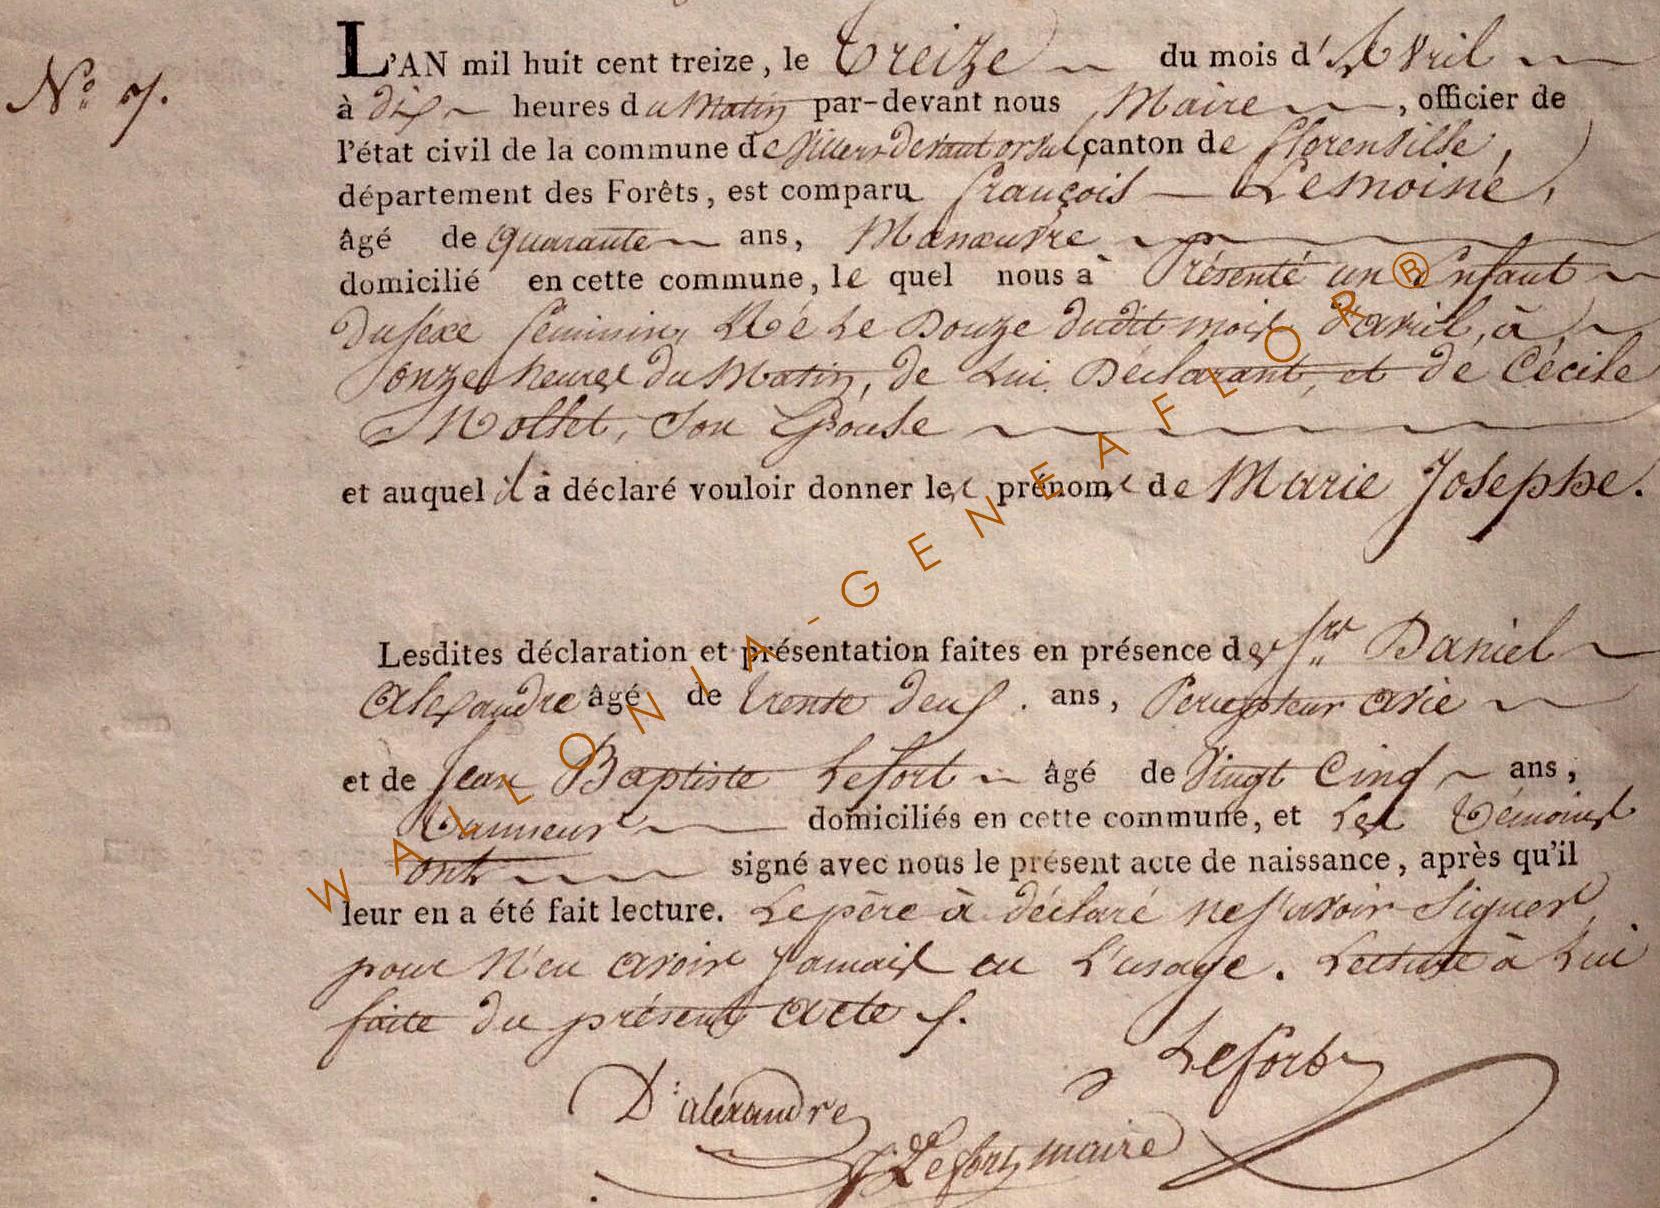 N.o 7.
L'AN mil huit cent treize, le treize du mois d'Avril
à dix heures du Matin par-devant nous Maire, officier de
l'état civil de la commune de Villers devant orval, canton de florenville,
département des Forêts, est comparu françois Lemoine,
âgé de quarante ans, Manœuvre
domicilié en cette commune, le quel nous à Présenté un Enfant
du sexe feminin, Né Le Douze dudit mois d'avril, à
onze heures du Matin, de Lui Déclarant, et de Cécile
Mollet, Son Epouse
et auquel il à déclaré vouloir donner les prénoms de Marie Josephe.
Lesdites déclaration et présentation faites en présence des srs Daniel
Alexandre âgé de trente deux ans, Percepteur
et de Jean Baptiste Lefort âgé de Vingt Cinq ans,
Tanneur domiciliés en cette commune, et Les Témoins
ont signé avec nous le présent acte de naissance, après qu'il
leur en a été fait lecture. Le père à déclaré ne savoir Signer,
pour n'en avoir jamais eu L'usage. Lecture à Lui
faite du présent acte.
Lefort
D: alexandre
Lefort, maire
WALLONIA-GENEAFLOR®